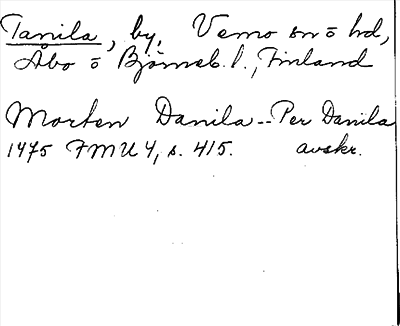 Tanila, by, Vemo sn o hd,
Åbo o Björneb. l., Finland
Morten Danila -- Per Danila
1475 FMU 4, s. 415. avskr.